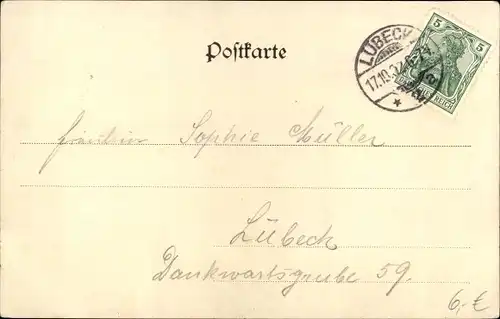 Postkarte
LÜBECK
17.10.02.
5 5
REICH
Fräulein Sophie Müller
Lübeck
Dankwartsgrube 59.
6,-€